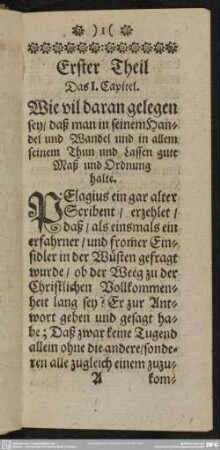 )1(
Erster Theil
Das I. Capitel.
Wie vil daran gelegen
sey/ daß man in seinem Han-
del und Wandel und in allem
seinem Thun und Lassen gute
Maß und Ordnung
halte.
PElagius ein gar alter
Scribent/ erzehlet/
daß/ als einsmals ein
erfahrner/ und from̃er Ein-
sidler in der Wüsten gefragt
wurde/ ob der Weeg zu der
Christlichen Vollkommen-
heit lang sey? Er zur Ant-
wort geben und gesagt ha-
be; Daß zwar keine Tugend
allein ohne die andere/ sonde-
ren alle zugleich einem zuzu-
A kom-